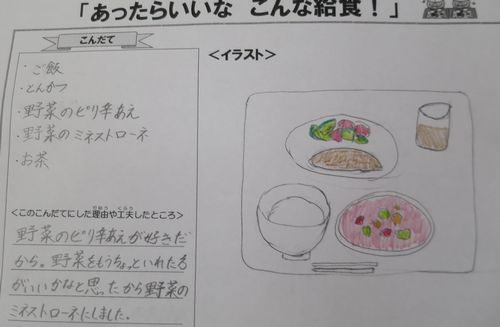 「あったらいいな こんな給食！」
こんだて
・ご飯
・とんかつ
・野菜のピリ辛あえ
・野菜のミネストローネ
・お茶
＜このこんだてにした理由や工夫したところ＞
野菜のピリ辛あえが好きだ
から。野菜をもうちょっといれた方
がいいかなと思ったから野菜の
ミネストローネにしました。
＜イラスト＞